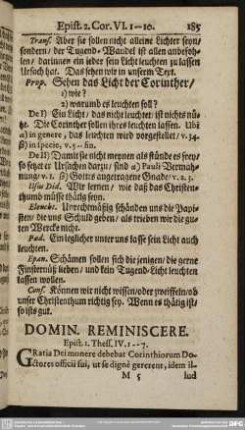 Epist. 2. Cor. VI. 1-10. 185
Trans. Aber sie sollen nicht alleine Lichter seyn/
sondern/ der Tugend-Wandel ist allen anbefoh-
len/ darinnen ein jeder sein Licht leuchten zu lassen
Ursach hat. Das sehen wir in unserm Text.
Prop. Sehen das Licht der Corinther/
1) wie?
2) warumb es leuchten soll?
De I) Ein Licht/ das nicht leuchtet/ ist nichts nü-
tze. Die Corinther sollen ihres leuchten lassen. Ubi
α) in genere, das leuchten wird vorgestellet/ v. 14.
β) in specie, v. 5-fin.
De II) Damit sie nicht meynen als stünde es frey/
so setzet er Ursachen darzu/ sind α) Pauli Vermah-
nung/ v. 1. β) Gottes angetragene Gnade/ v. 2. 3.
Usus Did. Wir lernen/ wie daß das Christen-
thumb müsse thätig seyn.
Elencht. Unrechtmäßig schänden uns die Papi-
sten/ die uns Schuld geben/ als trieben wir die gu-
ten Wercke nicht.
Pæd. Ein ieglicher unter uns lasse sein Licht auch
leuchten.
Epan. Schämen sollen sich die jenigen/ die gerne
Finsternüß lieben/ und kein Tugend-Licht leuchten
lassen wollen.
Cons. Können wir nicht wissen/ oder zweiffeln/ ob
unser Christenthum richtig sey. Wenn es thätig ist/
so ists gut.
DOMIN. REMINISCERE.
Epist. 1. Thess. IV. 1--7.
Gratia Dei monere debebat Corinthiorum Do-
ctores officii sui, ut se dignè gererent, idem il-
M 5 lud